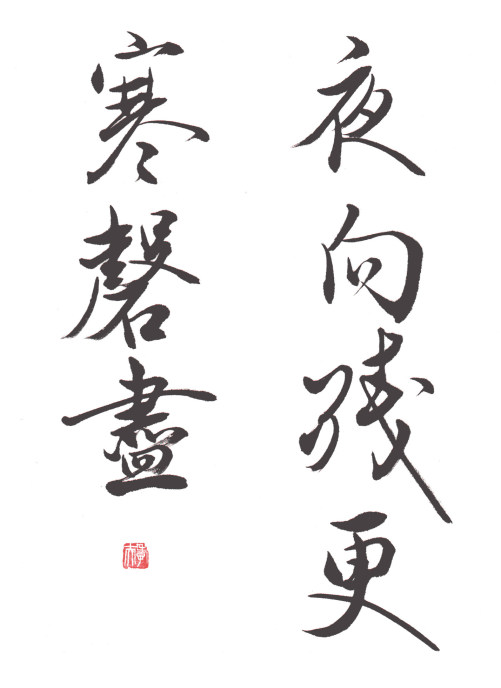 夜向残更
寒磬盡